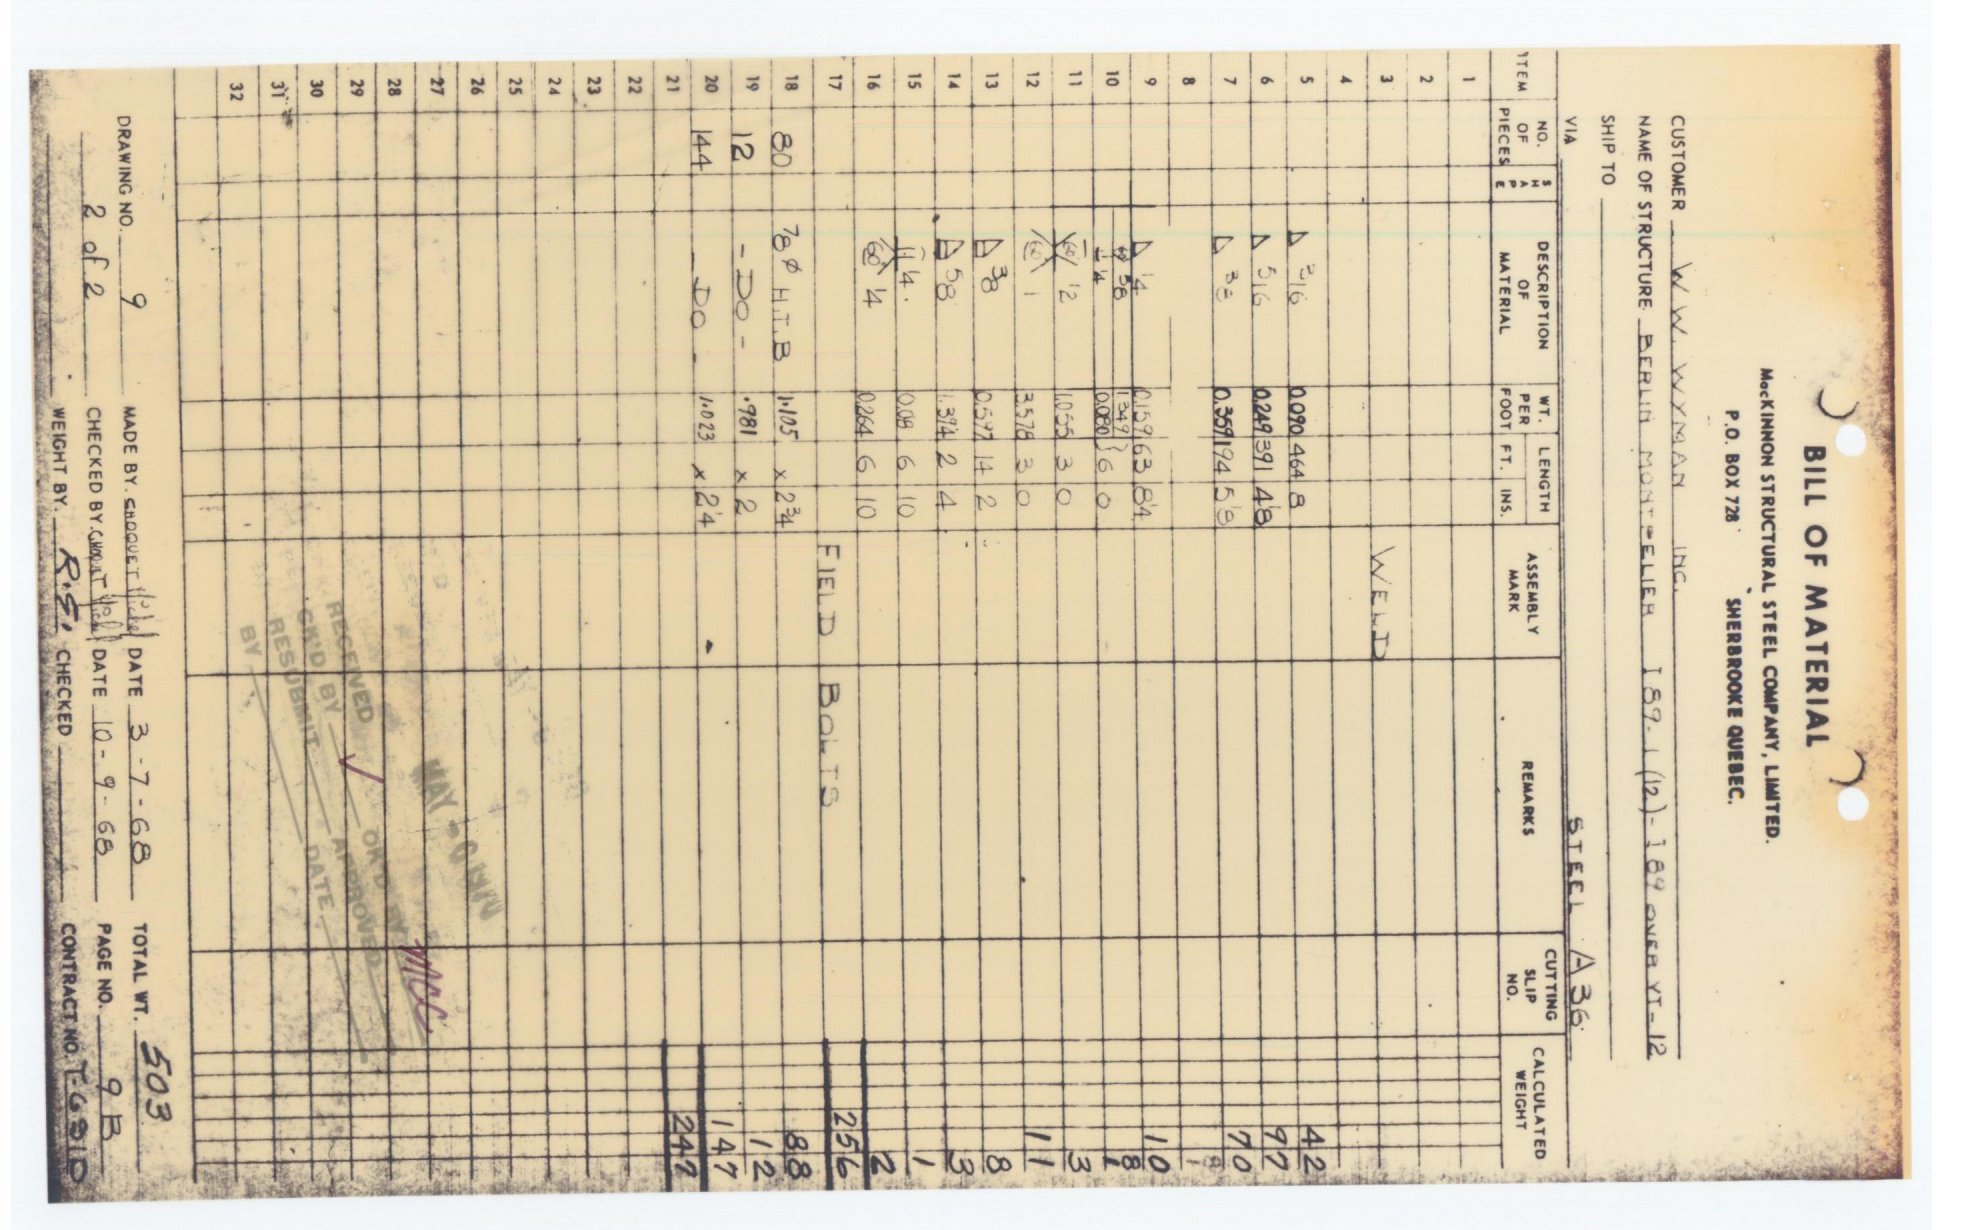 BILL OF MATERIAL
MacKINNON STRUCTURAL STEEL COMPANY, LIMITED.
P.O. BOX 728 SHERBROOKE QUEBEC.
CUSTOMER W.W. WYMAN INC.
NAME OF STRUCTURE BERLIN MONTPELIER I 89-1(12)- I 89 OVER VT-12
SHIP TO
VIA STEEL A36
ITEM NO. OF PIECES SHAPE DESCRIPTION OF MATERIAL WT. PER FOOT LENGTH FT. INS. ASSEMBLY MARK REMARKS CUTTING SLIP NO. CALCULATED WEIGHT
1
2
3 WELD
4
5 3/16 0.090 464 8 42
6 5/16 0.249 391 4 1/8 97
7 3/8 0.359 194 5 70
8
9 1/4 0.159 63 8 1/4 10
10 5/8 1.349 8
1/4 0.080 6 0 1
11 60 1/2 1.055 3 0 3
12 60 1 3.578 3 0 11
13 3/8 0.597 14 2 8
14 5/8 1.394 2 4 3
15 1/4 0.08 6 10 1
16 60 1/4 0.264 6 10 2
17 FIELD BOLTS 256
18 80 7/8 ø H.T.B 1.105 x 2 3/4 88
19 12 - DO - .981 x 2 12
20 144 - DO - 1.023 x 2 1/4 147
21 247
22
23
24
25
26
27
28
29
30
31
32
MAY
RECEIVED
CK'D BY OK'D BY MCC
RESUBMIT APPROVED
BY DATE
DRAWING NO. 9 MADE BY. CHOQUET DATE 3-7-68 TOTAL WT. 503
2 of 2 CHECKED BY. DATE 10-9-68 PAGE NO. 9 B
WEIGHT BY. R.S. CHECKED CONTRACT NO.